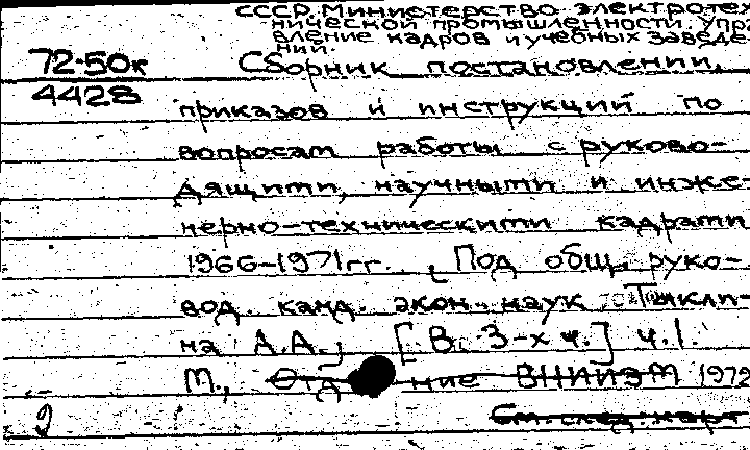 СССР. Министерство электротех
нической промышленности. Упра
вление кадров и учебных заведе
ний.
72-50к
4428
Сборник постановлений,
приказов и инструкций по
вопросам работы с руково-
дящими, научными и инже-
нерно-техническими кадрами
1966-1971гг. [Под общ. руко-
вод. канд. экон. наук Тыкли-
на А.А.] [В 3-х ч.] ч.1.
М., Отд ние ВНИИЭМ 1972
2
См. след. карт